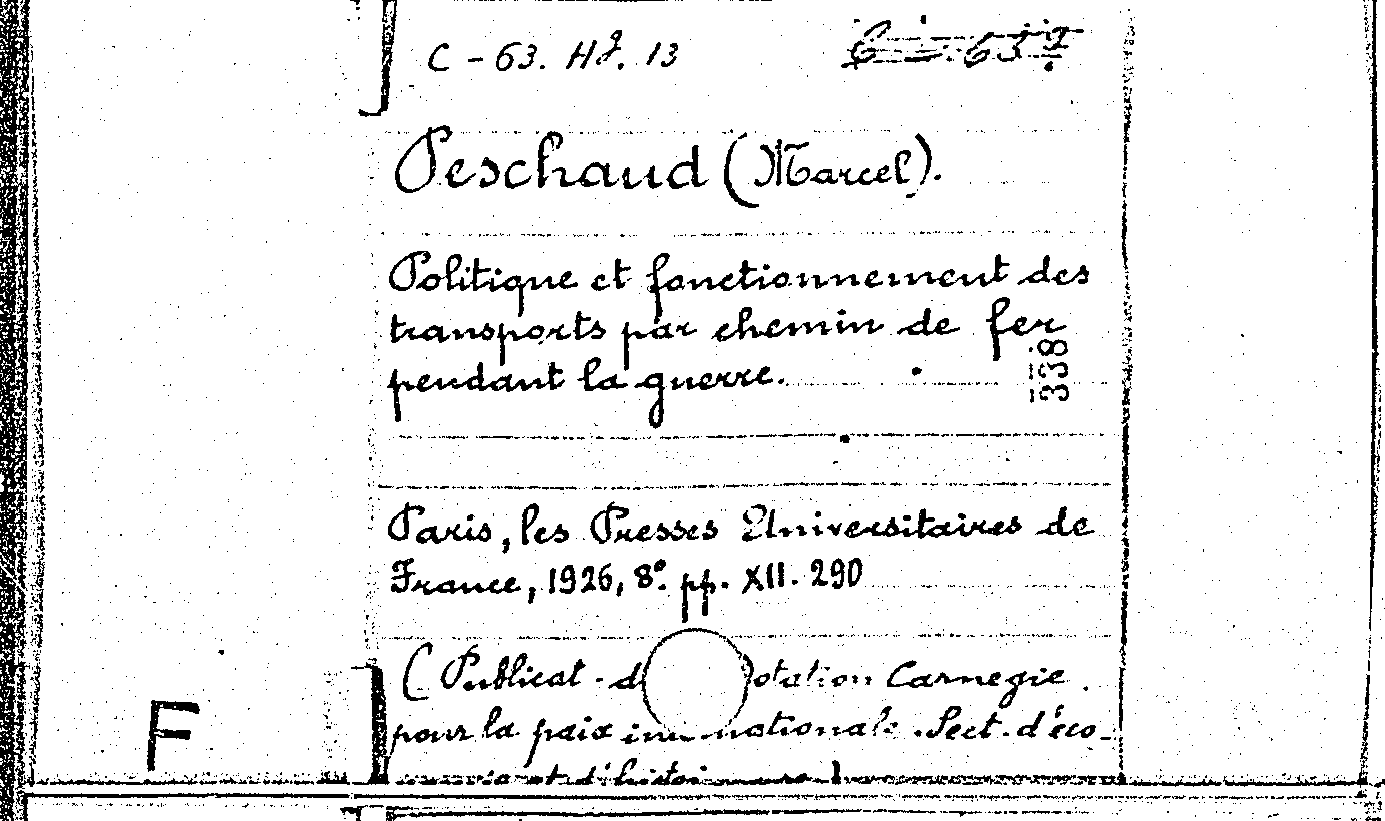 C - 63. Hf. 13
Peschaud (Marcel).
Politique et fonctionnement des
transports par chemin de fer
pendant la guerre.
338
Paris, les Presses Universitaires de
France, 1926, 8º. pp. XII. 290
(Publicat. d otation Carnegie
pour la paix internationale. Sect. d'éco-
et d'histoi
F